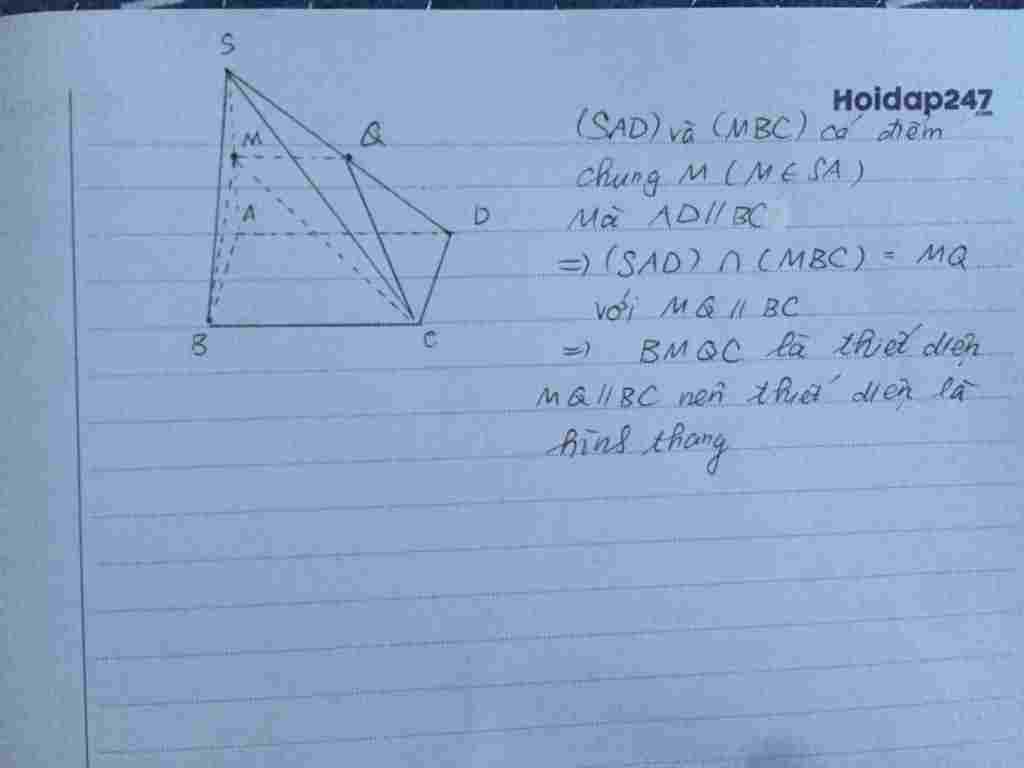 S
M
Q
A
D
B
C
Hoidap247
.com
(SAD) và (MBC) có điểm
chung M (M ∈ SA)
Mà AD // BC
=) (SAD) ∩ (MBC) = MQ
với MQ // BC
=) BMQC là thiết diện
MQ // BC nên thiết diện là
hình thang